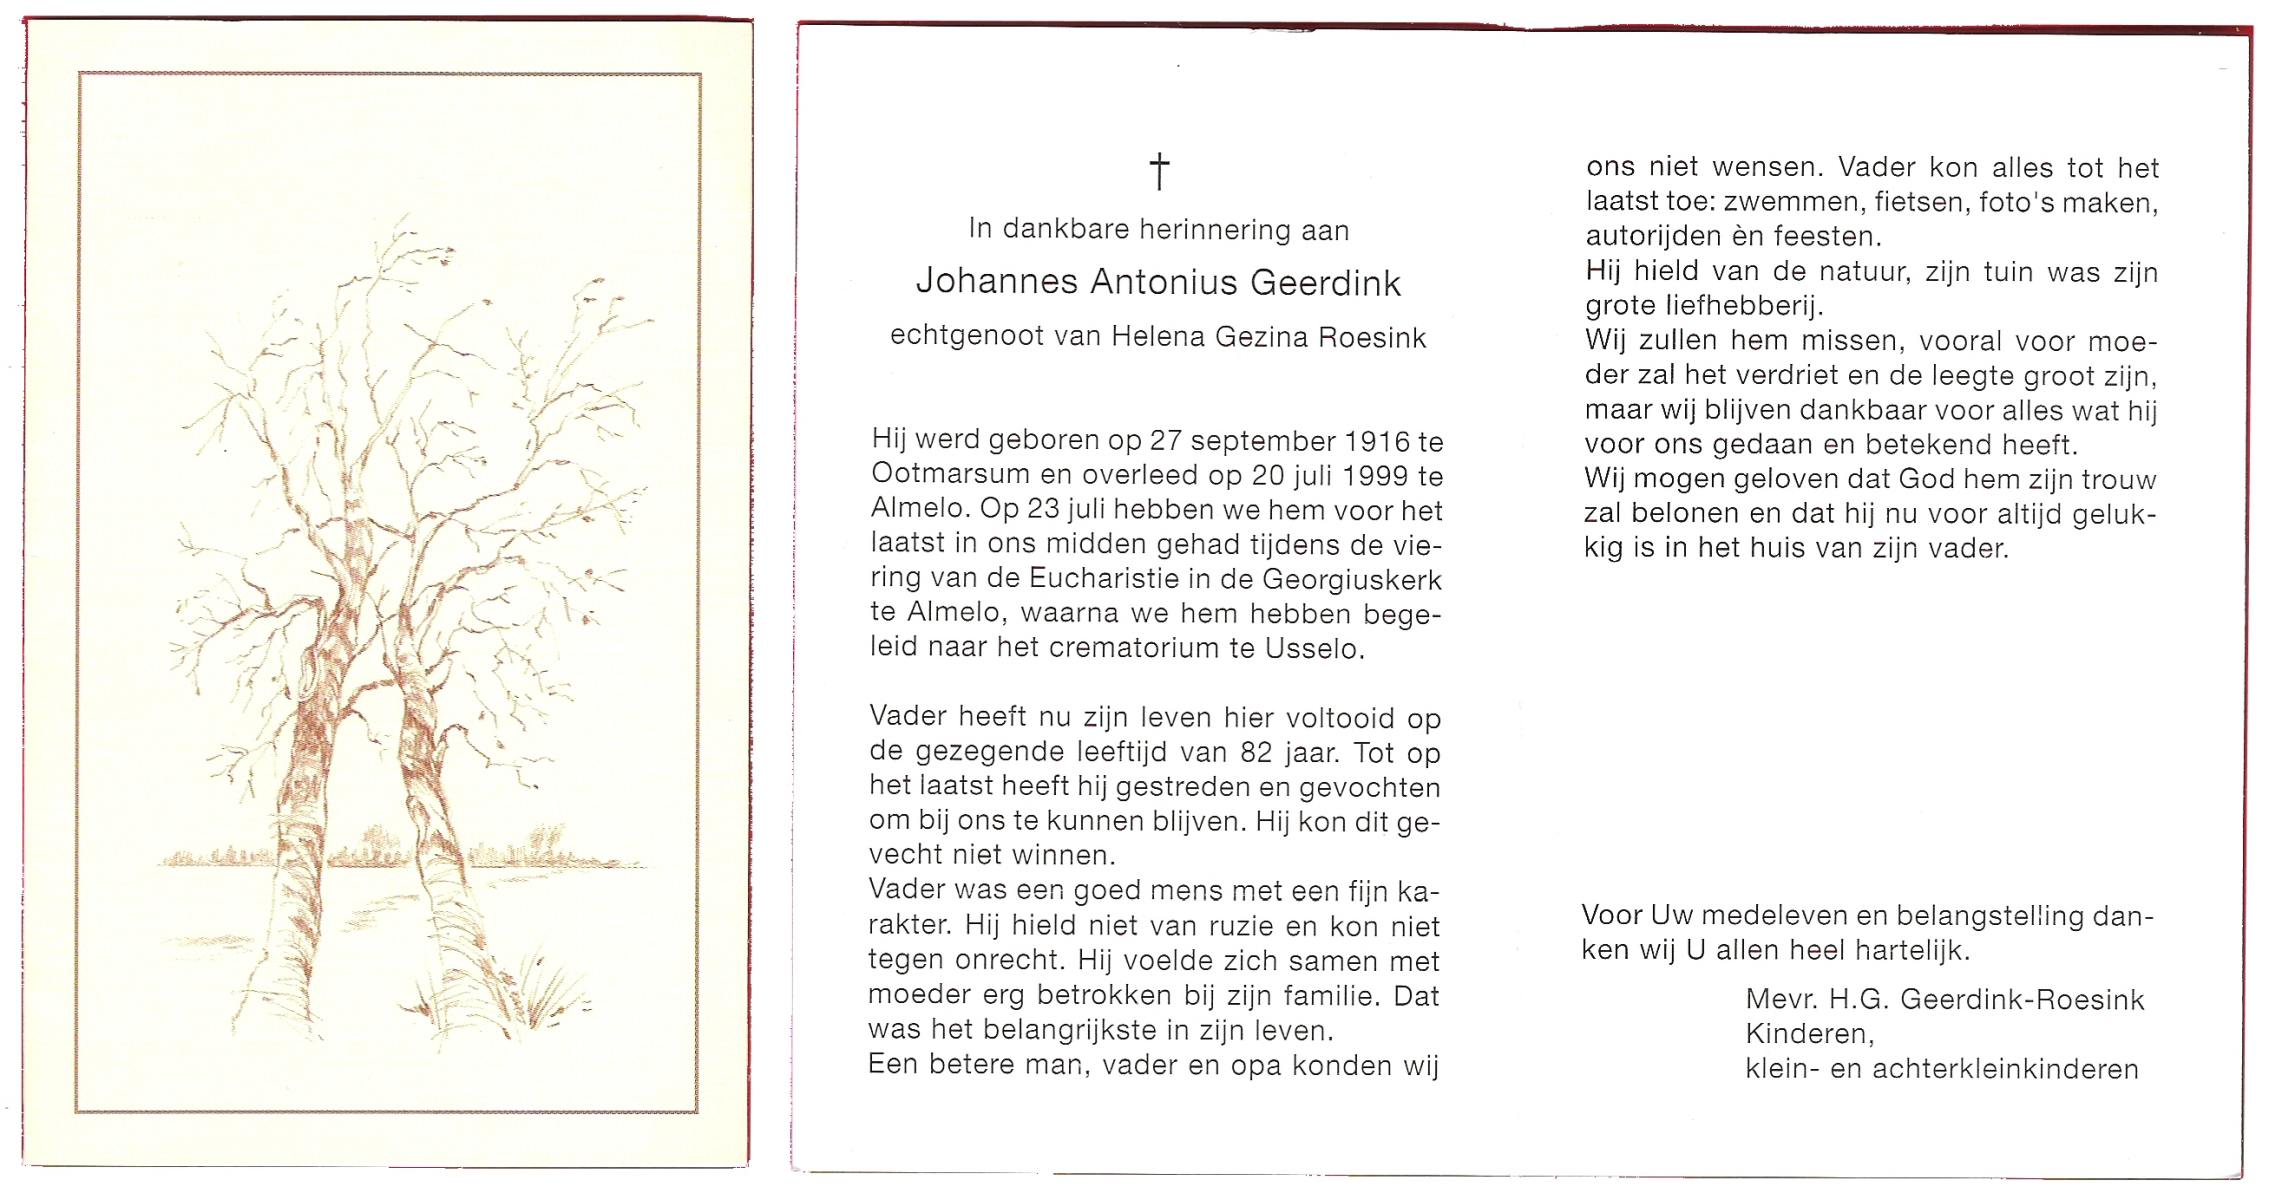 †
In dankbare herinnering aan
Johannes Antonius Geerdink
echtgenoot van Helena Gezina Roesink
Hij werd geboren op 27 september 1916 te
Ootmarsum en overleed op 20 juli 1999 te
Almelo. Op 23 juli hebben we hem voor het
laatst in ons midden gehad tijdens de vie-
ring van de Eucharistie in de Georgiuskerk
te Almelo, waarna we hem hebben bege-
leid naar het crematorium te Usselo.
Vader heeft nu zijn leven hier voltooid op
de gezegende leeftijd van 82 jaar. Tot op
het laatst heeft hij gestreden en gevochten
om bij ons te kunnen blijven. Hij kon dit ge-
vecht niet winnen.
Vader was een goed mens met een fijn ka-
rakter. Hij hield niet van ruzie en kon niet
tegen onrecht. Hij voelde zich samen met
moeder erg betrokken bij zijn familie. Dat
was het belangrijkste in zijn leven.
Een betere man, vader en opa konden wij
ons niet wensen. Vader kon alles tot het
laatst toe: zwemmen, fietsen, foto's maken,
autorijden èn feesten.
Hij hield van de natuur, zijn tuin was zijn
grote liefhebberij.
Wij zullen hem missen, vooral voor moe-
der zal het verdriet en de leegte groot zijn,
maar wij blijven dankbaar voor alles wat hij
voor ons gedaan en betekend heeft.
Wij mogen geloven dat God hem zijn trouw
zal belonen en dat hij nu voor altijd geluk-
kig is in het huis van zijn vader.
Voor Uw medeleven en belangstelling dan-
ken wij U allen heel hartelijk.
Mevr. H.G. Geerdink-Roesink
Kinderen,
klein- en achterkleinkinderen